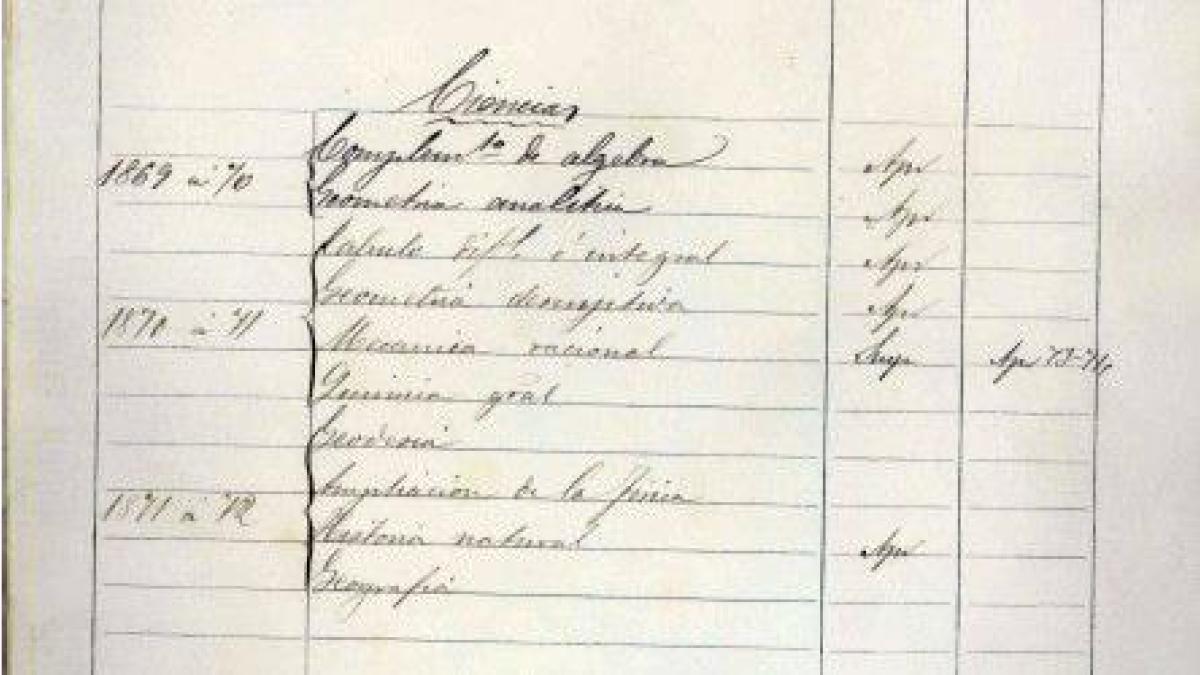 Ciencias
Complemto de algebra Apr
1869 á 70
Geometria analitica Apr
Calculo difl é integral Apr
Geometria descriptiva Apr
1870 á 71
Mecanica racional Susp Apr 73-74
Quimica gral
Geodesia
Ampliacion de la fisica
1871 á 72
Historia natural Apr
Geografia